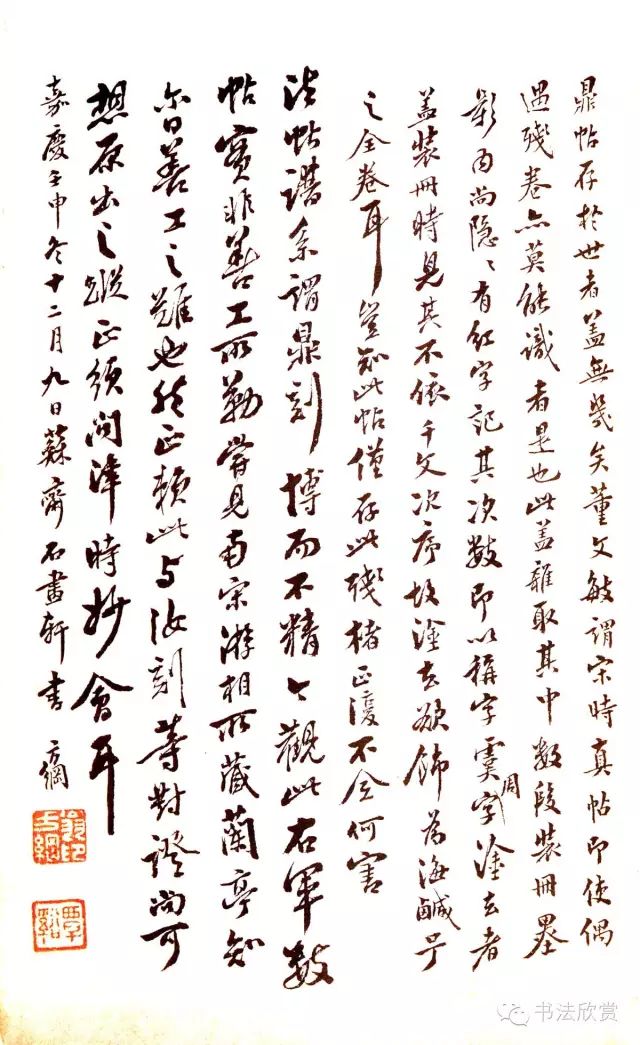 鼎帖存於世者蓋無幾矣董文敏謂宋時真帖即使偶
遇殘卷亦莫能識者是也此蓋雜取其中數段裝冊墨
影內尚隱〻有紅字記其次數即以稱字虞周字塗去者
蓋裝冊時見其不依千文次序故塗去欲飾為海鹹号
之全卷耳豈知此帖僅存此殘楮正復不全何害
法帖譜系謂鼎刻博而不精今觀此右軍數
帖實非善工所勒嘗見南宋游相所藏蘭亭知
尔日善工之難也然正賴此与汝刻等對證尚可
想原出之蹤正須問津時妙會耳
嘉慶壬申冬十二月九日蘇齋石畫軒書 方綱
翁方綱印
覃谿
书法欣赏